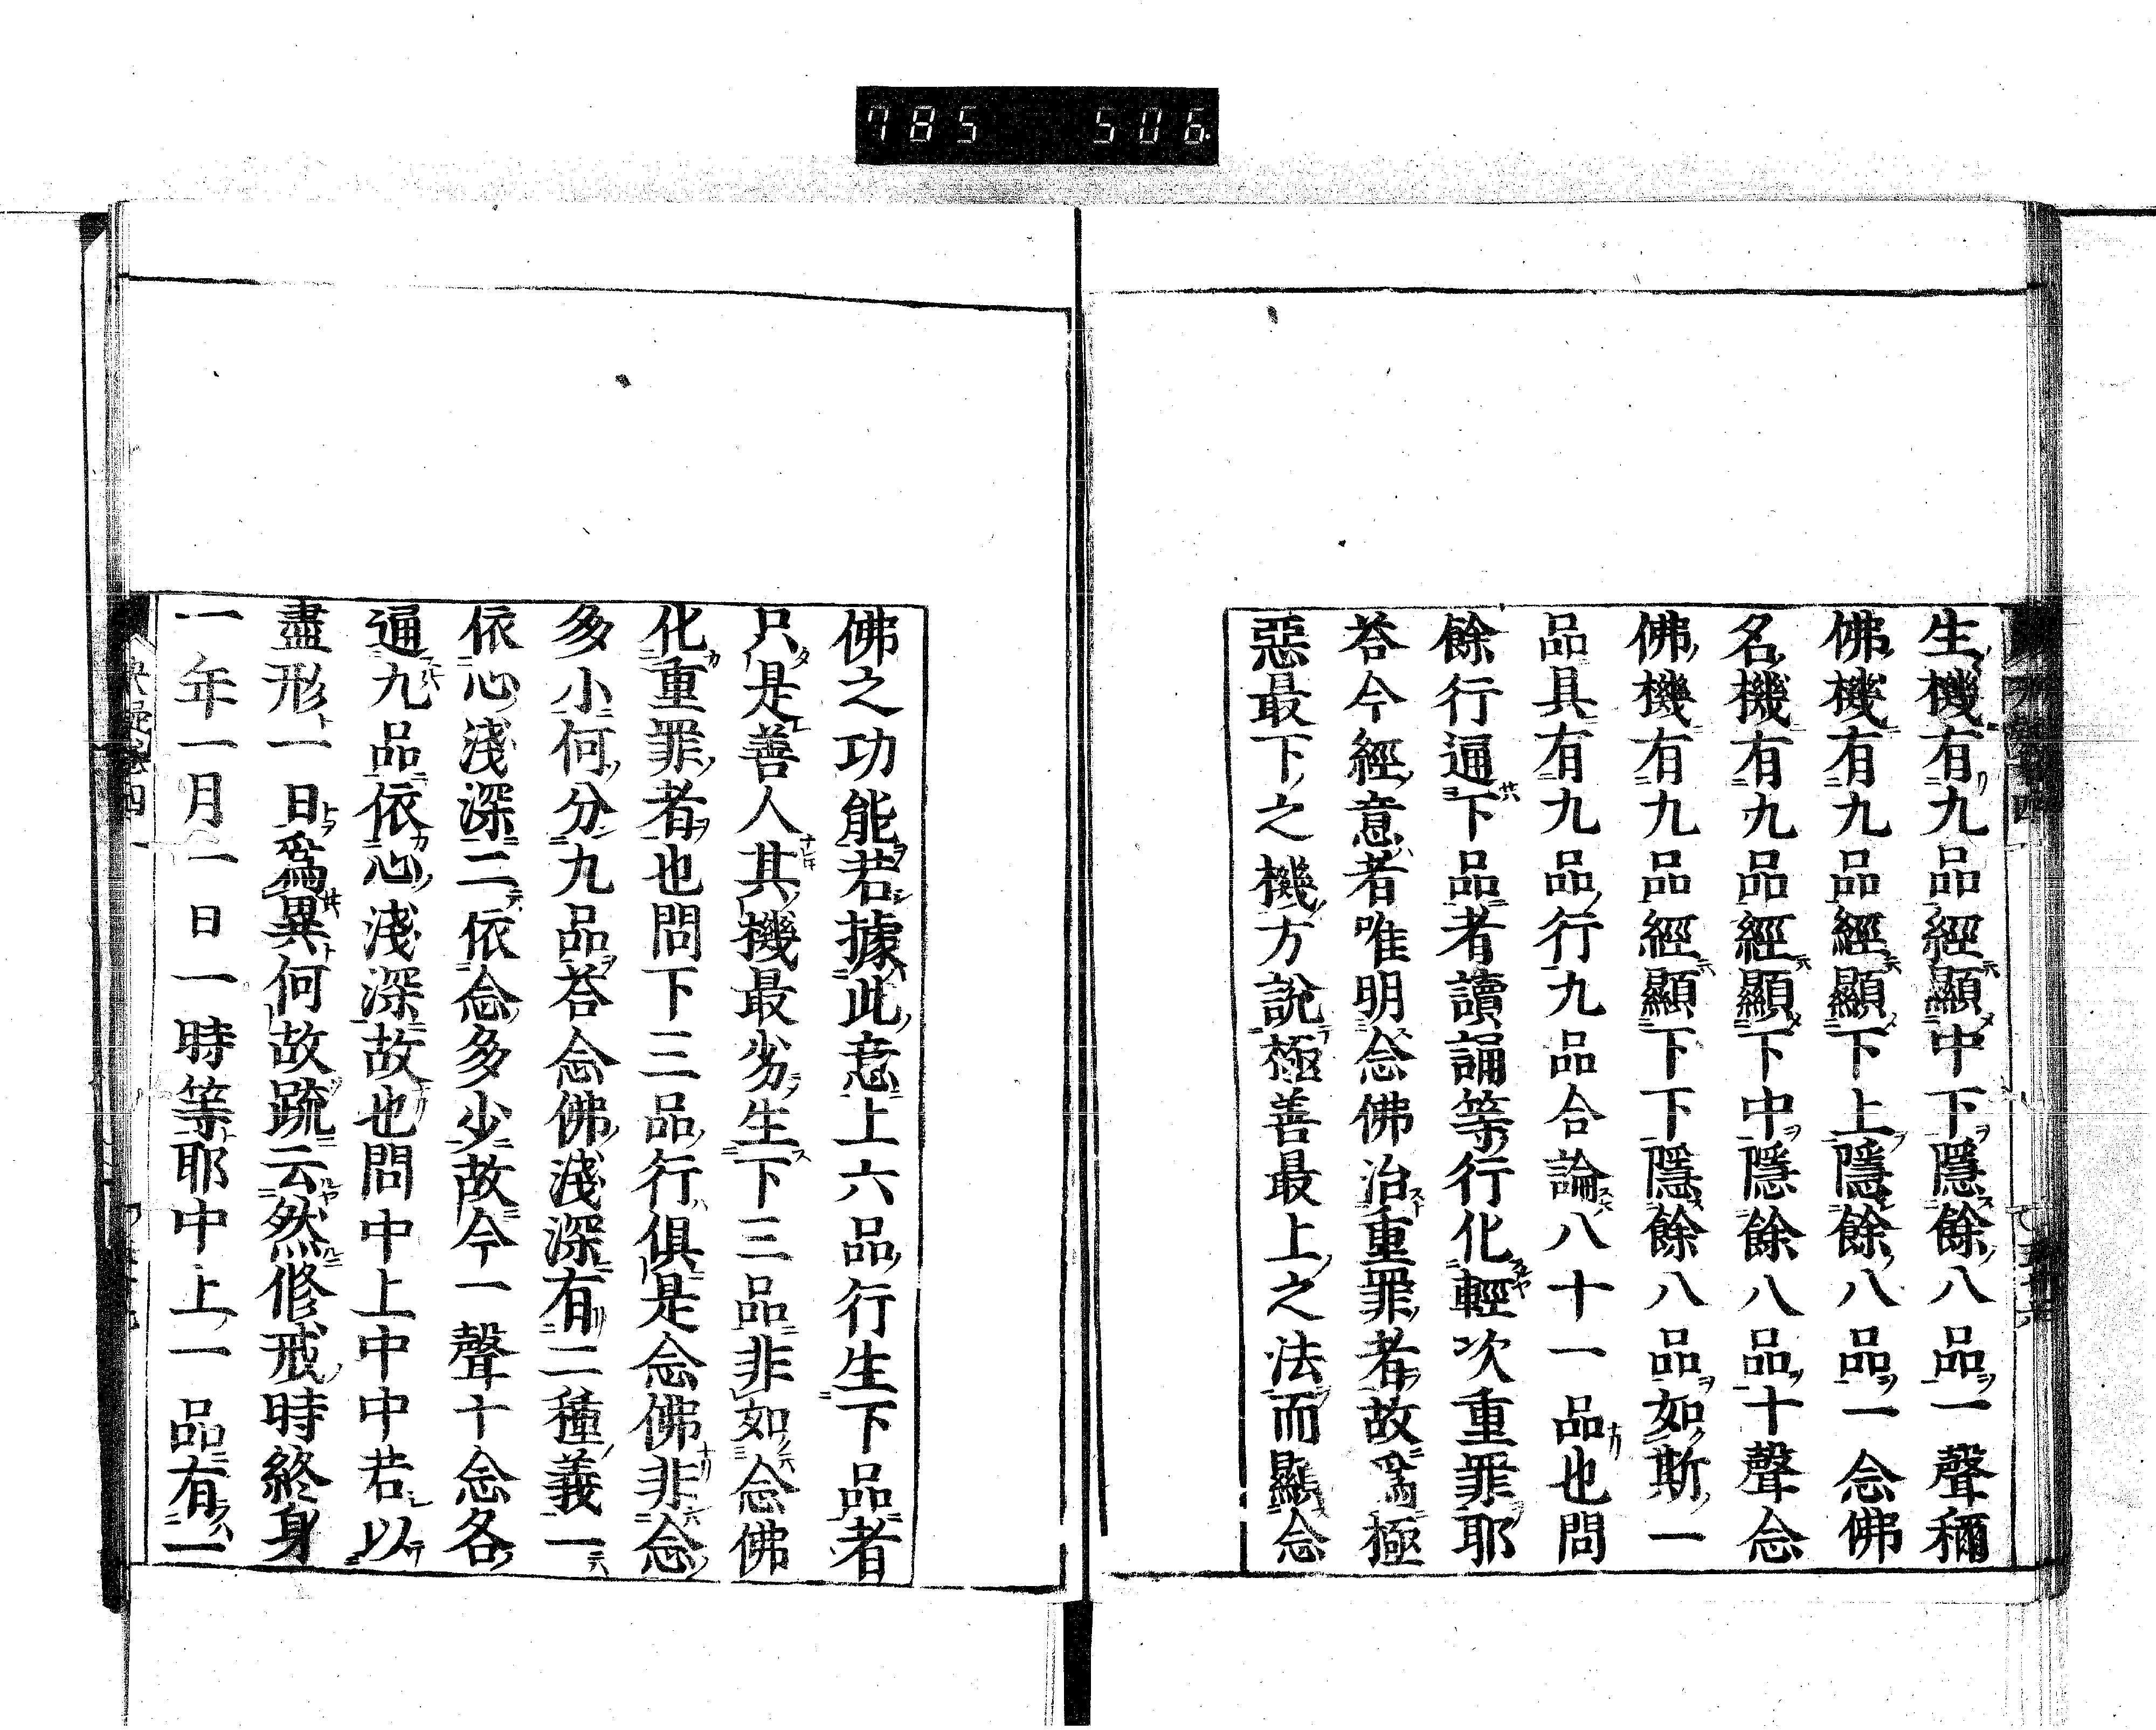 785 506
生機有九品經顯中下隱餘八品一聲稱
佛機有九品經顯下上隱餘八品一念佛
名機有九品經顯下中隱餘八品十聲念
佛機有九品經顯下下隱餘八品如斯一
品具有九品行九品合論八十一品也問
餘行通下品者讀誦等行化輕次重罪耶
荅今經意者唯明念佛治重罪者故爲極
惡最下之機方說極善最上之法而顯念
佛之功能若據此意上六品行生下品者
只是善人其機最劣生下三品非如念佛
化重罪者也問下三品行俱是念佛非念
多小何分九品荅念佛淺深有二種義一
依心淺深二依念多少故今一聲十念各
通九品依心淺深故也問中上中中若以
盡形一日爲異何故疏云然修戒時終身
一年一月一日一時等耶中上一品有一